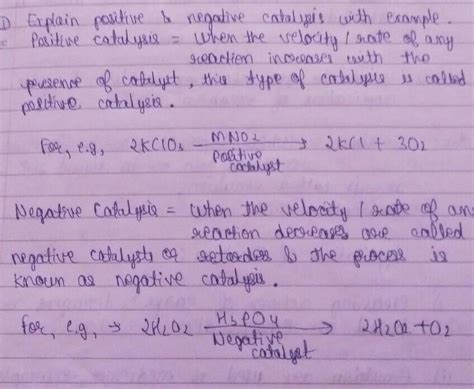 1) Explain positive & negative catalysis with example.
Positive catalysis = When the velocity / rate of any
reaction increases with the
presence of catalyst, this type of catalysis is called
positive catalysis.
For, e.g, 2KClO3 MNO2 Positive catalyst → 2KCl + 3O2
Negative Catalysis = When the velocity / rate of any
reaction decreases are called
negative catalysts or retarders & the process is
known as negative catalysis.
For, e.g, → 2H2O2 H3PO4 Negative catalyst → 2H2O2 + O2